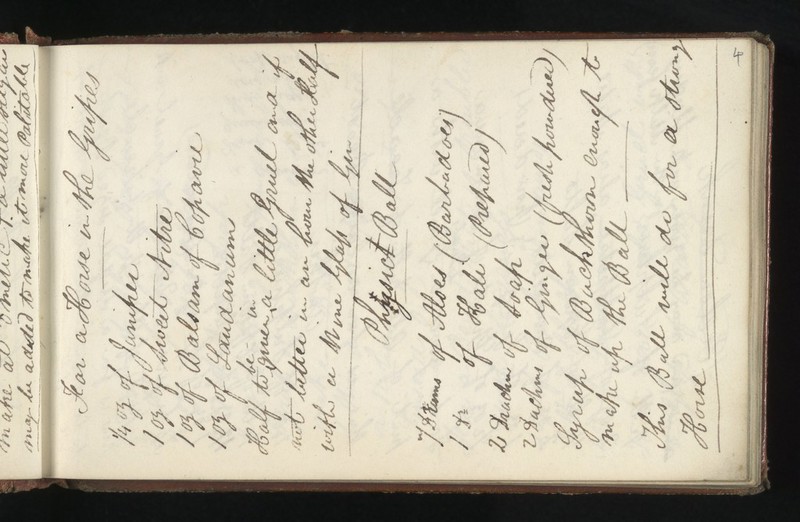 make at
a little sugar
may be added to make it more Palatable
4
For a Horse in the Gripes
1/4 oz of Juniper
1 oz of Sweet Nitre
1 oz of Balsam of Copavie
1 oz of Laudanum
Half to be given in a little Gruel and if
not better in an hour the other Half
with a Wine Glass of Gin
Physict Ball
7 Drams of Aloes (Barbadoes)
1 Do of Kali (Prepared)
2 Drachm of Soap
2 Drachms of Ginger (fresh powdered)
Syreup of Buckthorn enough to
make up the Ball
This Ball will do for a strong
Horse